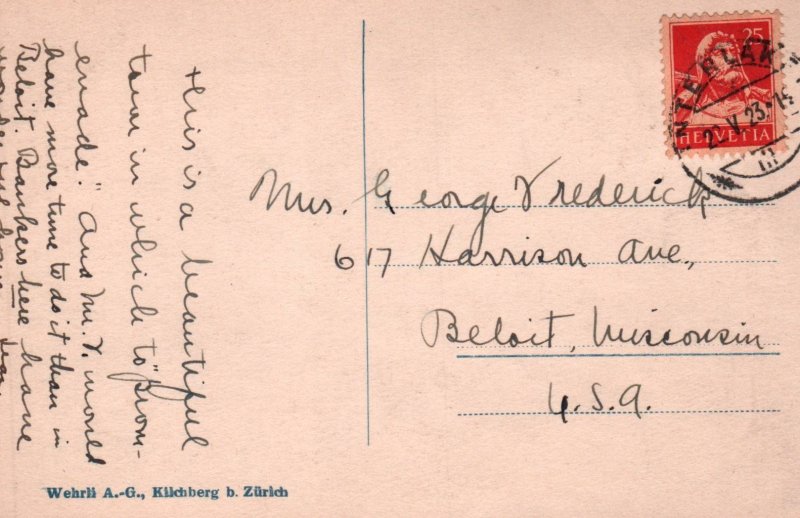 this is a beautiful
town in which to "prom-
enade." And Mr. V. would
have more time to do it than in
Beloit. Bankers here have
Mrs. George Vrederick
617 Harrison Ave,
Beloit, Wisconsin
U.S.A.
25
HELVETIA
INTERLAKEN
V.23
Wehrli A.-G., Kilchberg b. Zürich